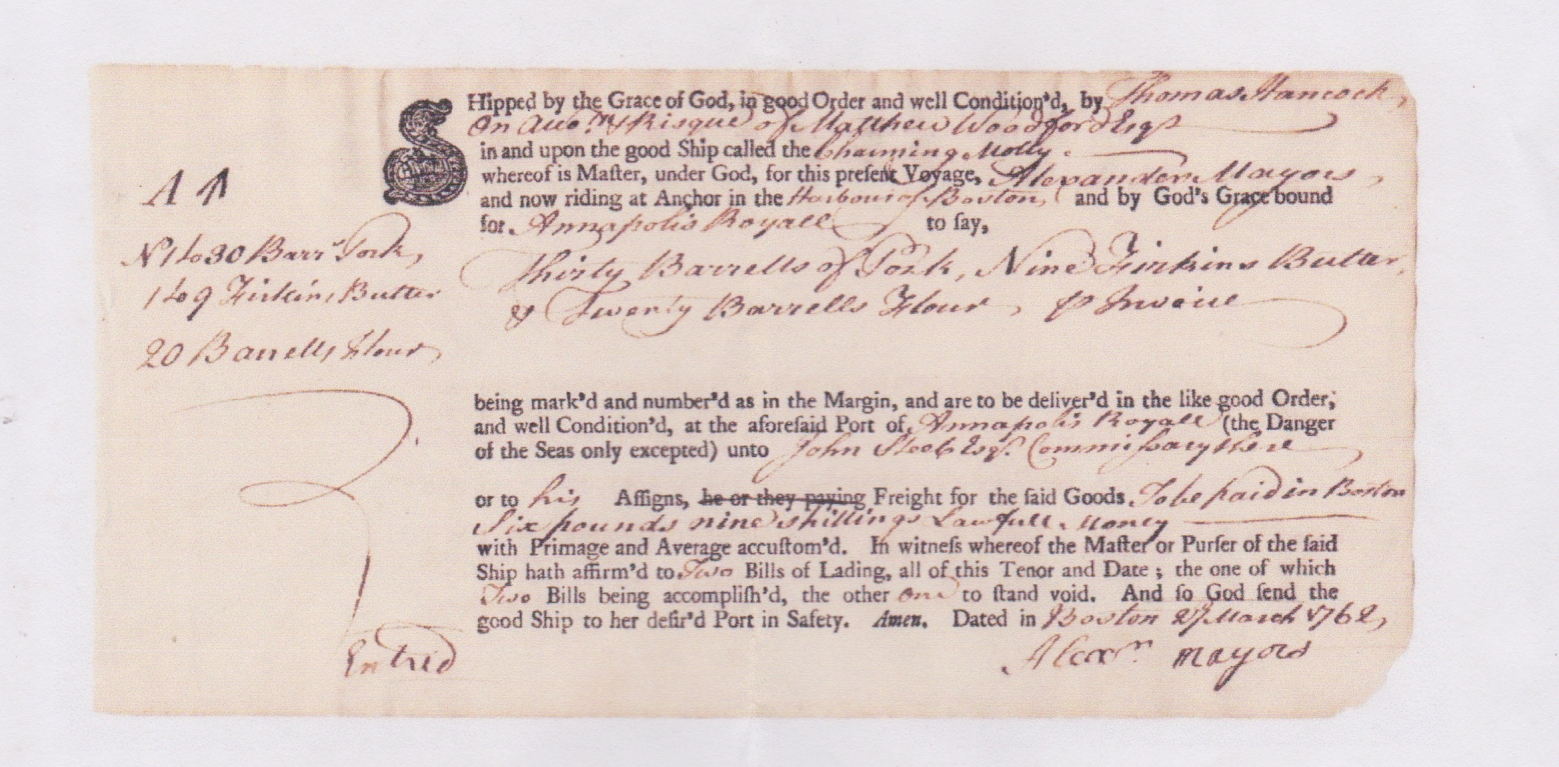 SHipped by the Grace of God, in good Order and well Condition'd, by Thomas Hancock,
On Acco.tt & Risque of Matthew Woodford Esqr
in and upon the good Ship called the Charming Molly
whereof is Maſter, under God, for this preſent Voyage, Alexander Mayors,
and now riding at Anchor in the Harbour of Boston, and by God's Grace bound
for Annapolis Royall to ſay,
Thirty Barrells of Pork, Nine Firkins Butter,
& Twenty Barrells Flour, ⅌ Invoice
A ↑
No 1 to 30 Barrs Pork,
1 to 9 Firkins Butter
20 Barrells Flour,
being mark'd and number'd as in the Margin, and are to be deliver'd in the like good Order,
and well Condition'd, at the aforeſaid Port of Annapolis Royall (the Danger
of the Seas only excepted) unto John Steeb Esqr. Commissary there
or to his Aſſigns, he or they paying Freight for the ſaid Goods, To be paid in Boston
Six pounds nine shillings Lawfull Money
with Primage and Average accuſtom'd. In witneſs whereof the Maſter or Purſer of the ſaid
Ship hath affirm'd to Two Bills of Lading, all of this Tenor and Date; the one of which
Two Bills being accompliſh'd, the other one to ſtand void. And ſo God ſend the
good Ship to her deſir'd Port in Safety. Amen. Dated in Boston 27 March 1762,
Entred
Alexr. mayors